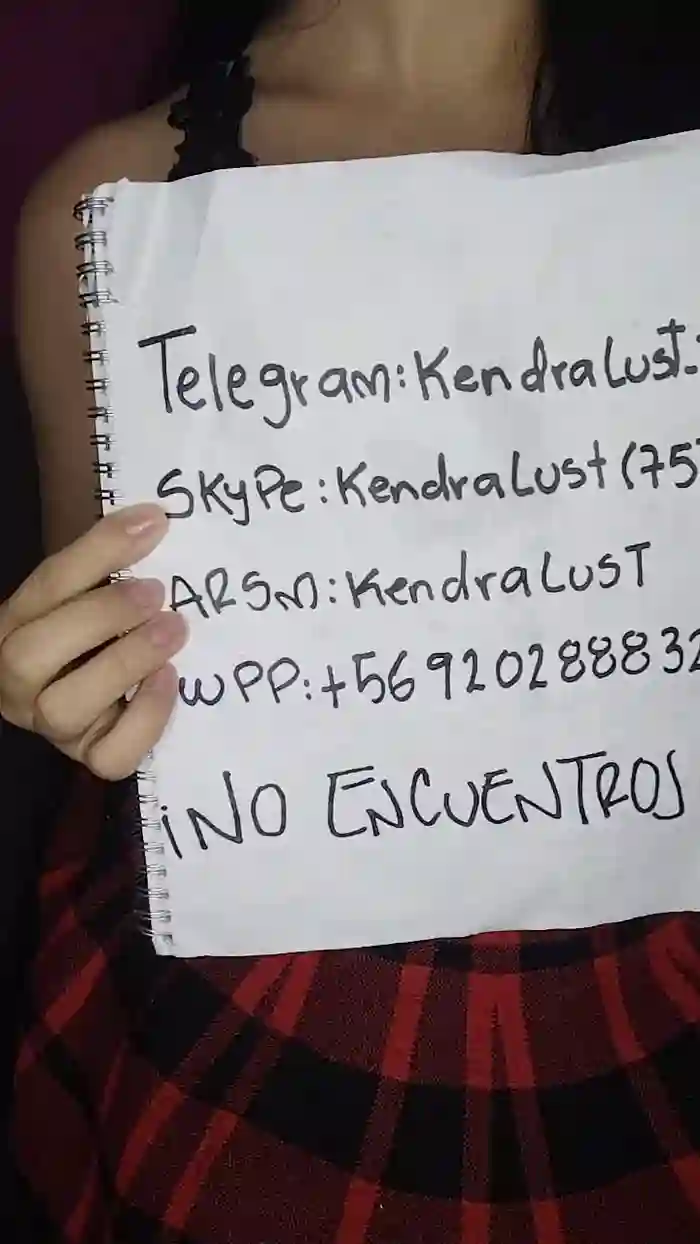 Telegram: KendraLust.
SKyPe: KendraLust (75
ARSM: KendraLusT
WPP: +56920288832
¡NO ENCUENTROS